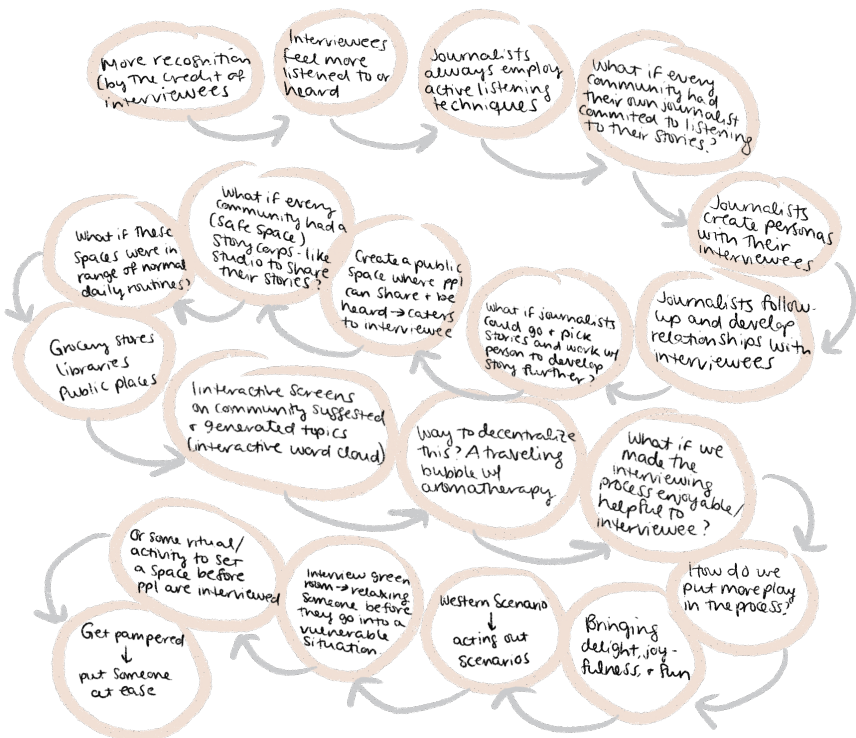 More recognition
(by the credit of
interviewees
Interviewees
feel more
listened to or
heard
Journalists
always employ
active listening
techniques
What if every
community had
their own journalist
commited to listening
to their stories?
Journalists
create personas
with their
interviewees
Journalists follow-
up and develop
relationships with
interviewees
what if journalists
could go + pick
stories and work w/
person to develop
story further?
Create a public
space where ppl
can share + be
heard → caters
to interviewee
What if every
community had a
(safe space)
Story Corps-like
studio to share
their stories?
What if these
spaces were in
range of normal
daily routines?
Grocery stores
Libraries
Public places
Iinteractive screens
on community suggested
+ generated topics
(interactive word cloud)
Way to decentralize
this? A traveling
bubble w/
aromatherapy
What if we
made the
interviewing
process enjoyable/
helpful to
interviewee?
How do we
put more play
in the process?
Bringing
delight, joy-
fulness, + fun
Western Scenario
↓
acting out
scenarios
Interview green
room → relaxing
someone before
they go into a
vulnerable
situation.
Or some ritual/
activity to set
a space before
ppl are interviewed
Get pampered
↓
put someone
at ease